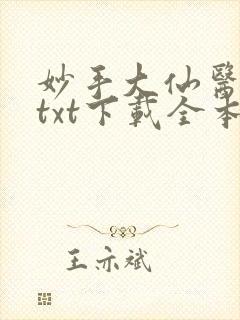 妙手大仙醫
txt下載全本
王亦斌